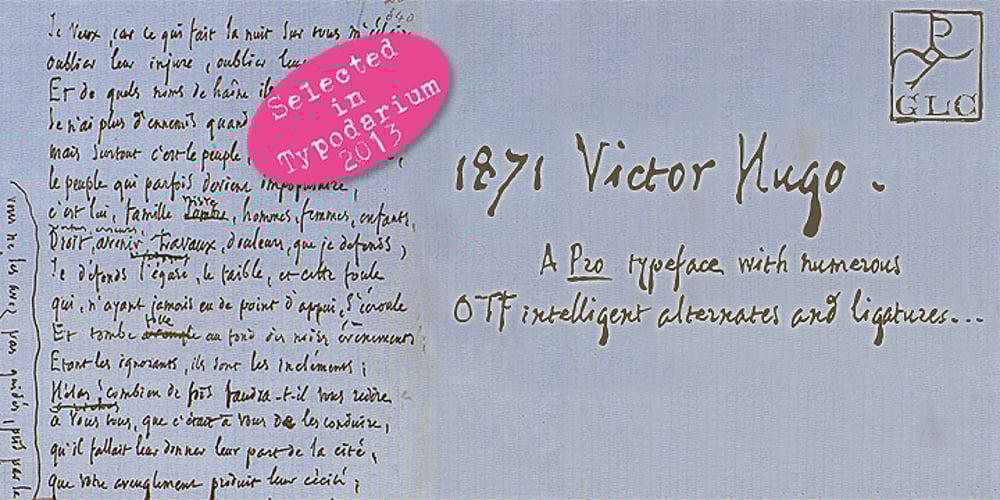 640
Je veux, car ce qui fait la nuit sur tous m'éclaire
oublier leur injure, oublier leur
Et de quels noms de haine ils
Je n'ai plus d'ennemis quand
mais surtout c'est le peuple,
le peuple qui parfois devient impopulaire,
c'est lui, famille triste, hommes, femmes, enfants,
Droit, avenir, travaux, douleurs, que je défends;
Je défends l'égaré, le faible, et cette foule
qui, n'ayant jamais eu de point d'appui, s'écroule
Et tombe folle au fond des noirs évènements
Etant les ignorants, ils sont les incléments;
Hélas! combien de fois faudra-t-il vous redire
à vous tous, que c'était à vous de les conduire,
qu'il fallait leur donner leur part de la cité,
que votre aveuglement produit leur cécité;
Selected
in
Typodarium
2013
P
GLC
1871 Victor Hugo.
A Pro typeface with numerous
OTF intelligent alternates and ligatures...